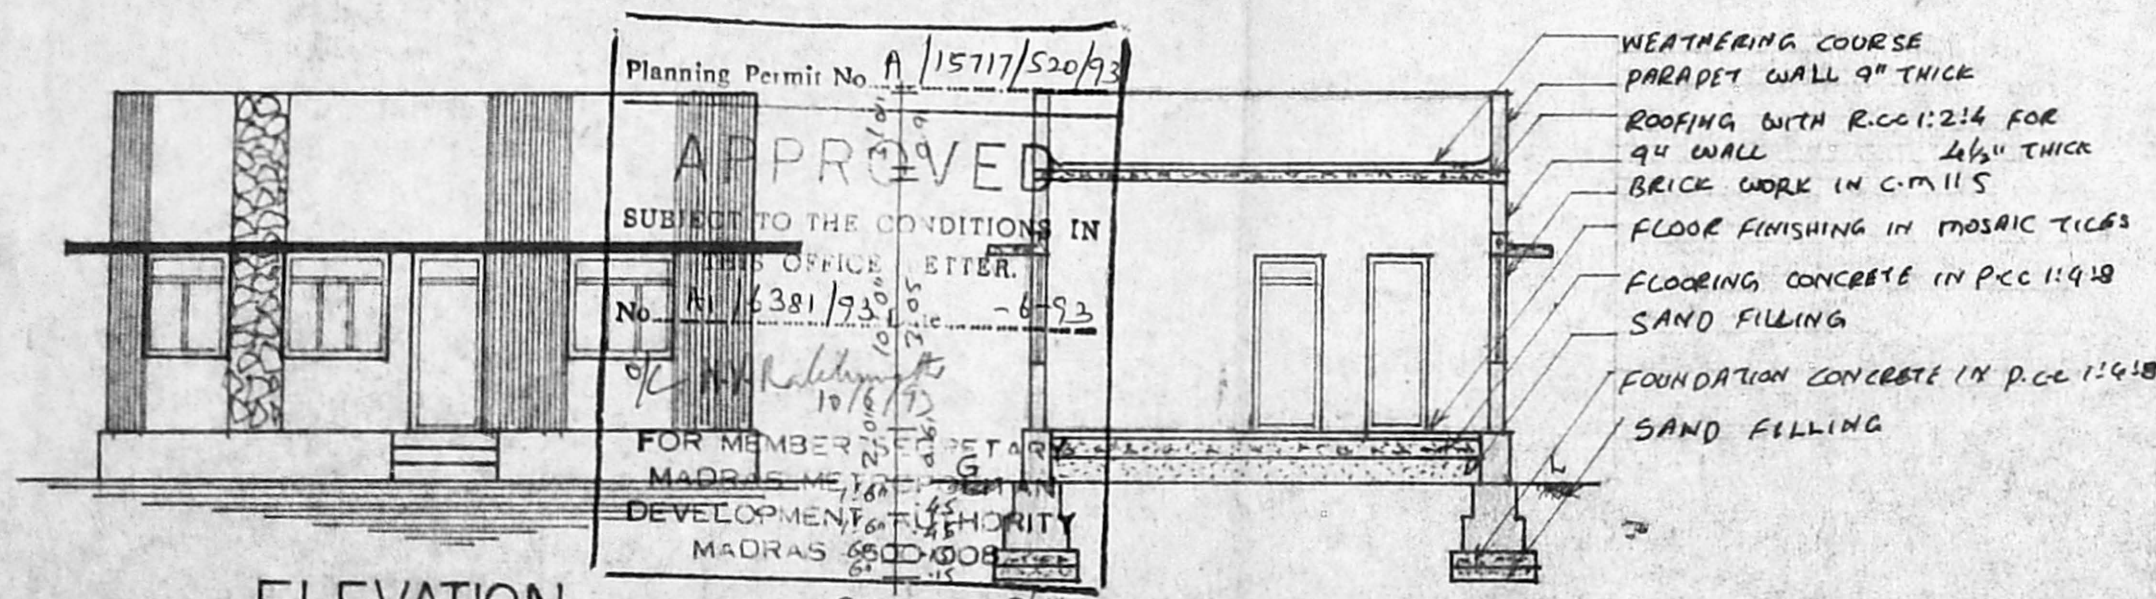 Planning Permit No. A/15717/520/93
APPROVED
SUBJECT TO THE CONDITIONS IN
THIS OFFICE LETTER.
No. A1/6381/93 -6-93
10/6/93
FOR MEMBER SECRETARY
MADRAS METROPOLITAN
DEVELOPMENT AUTHORITY
MADRAS 600 008
10'0"
3.05
WEATHERING COURSE
PARAPET WALL 9" THICK
ROOFING WITH R.CC 1:2:4 FOR
9" WALL 4½" THICK
BRICK WORK IN C.M 1:5
FLOOR FINISHING IN MOSAIC TILES
FLOORING CONCRETE IN P.CC 1:4:8
SAND FILLING
FOUNDATION CONCRETE IN P.C.C 1:4:8
SAND FILLING
G L
ELEVATION